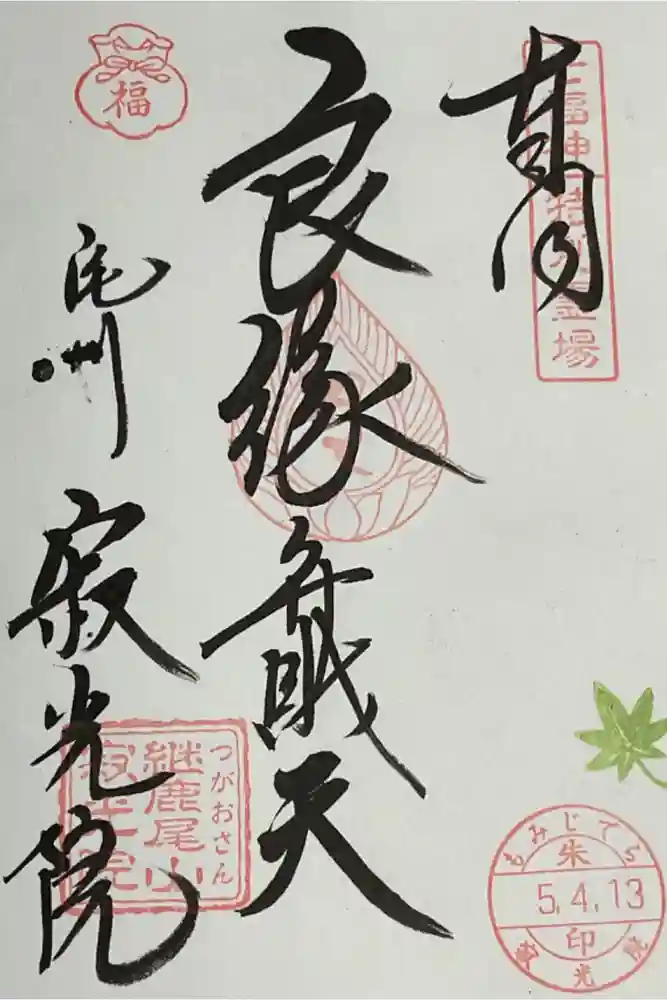 七福神特別霊場
良縁弁戝天
福
尾州
寂光院
つがおさん
継鹿尾山
寂光院
もみじでら
朱
5.4.13
印
寂光院